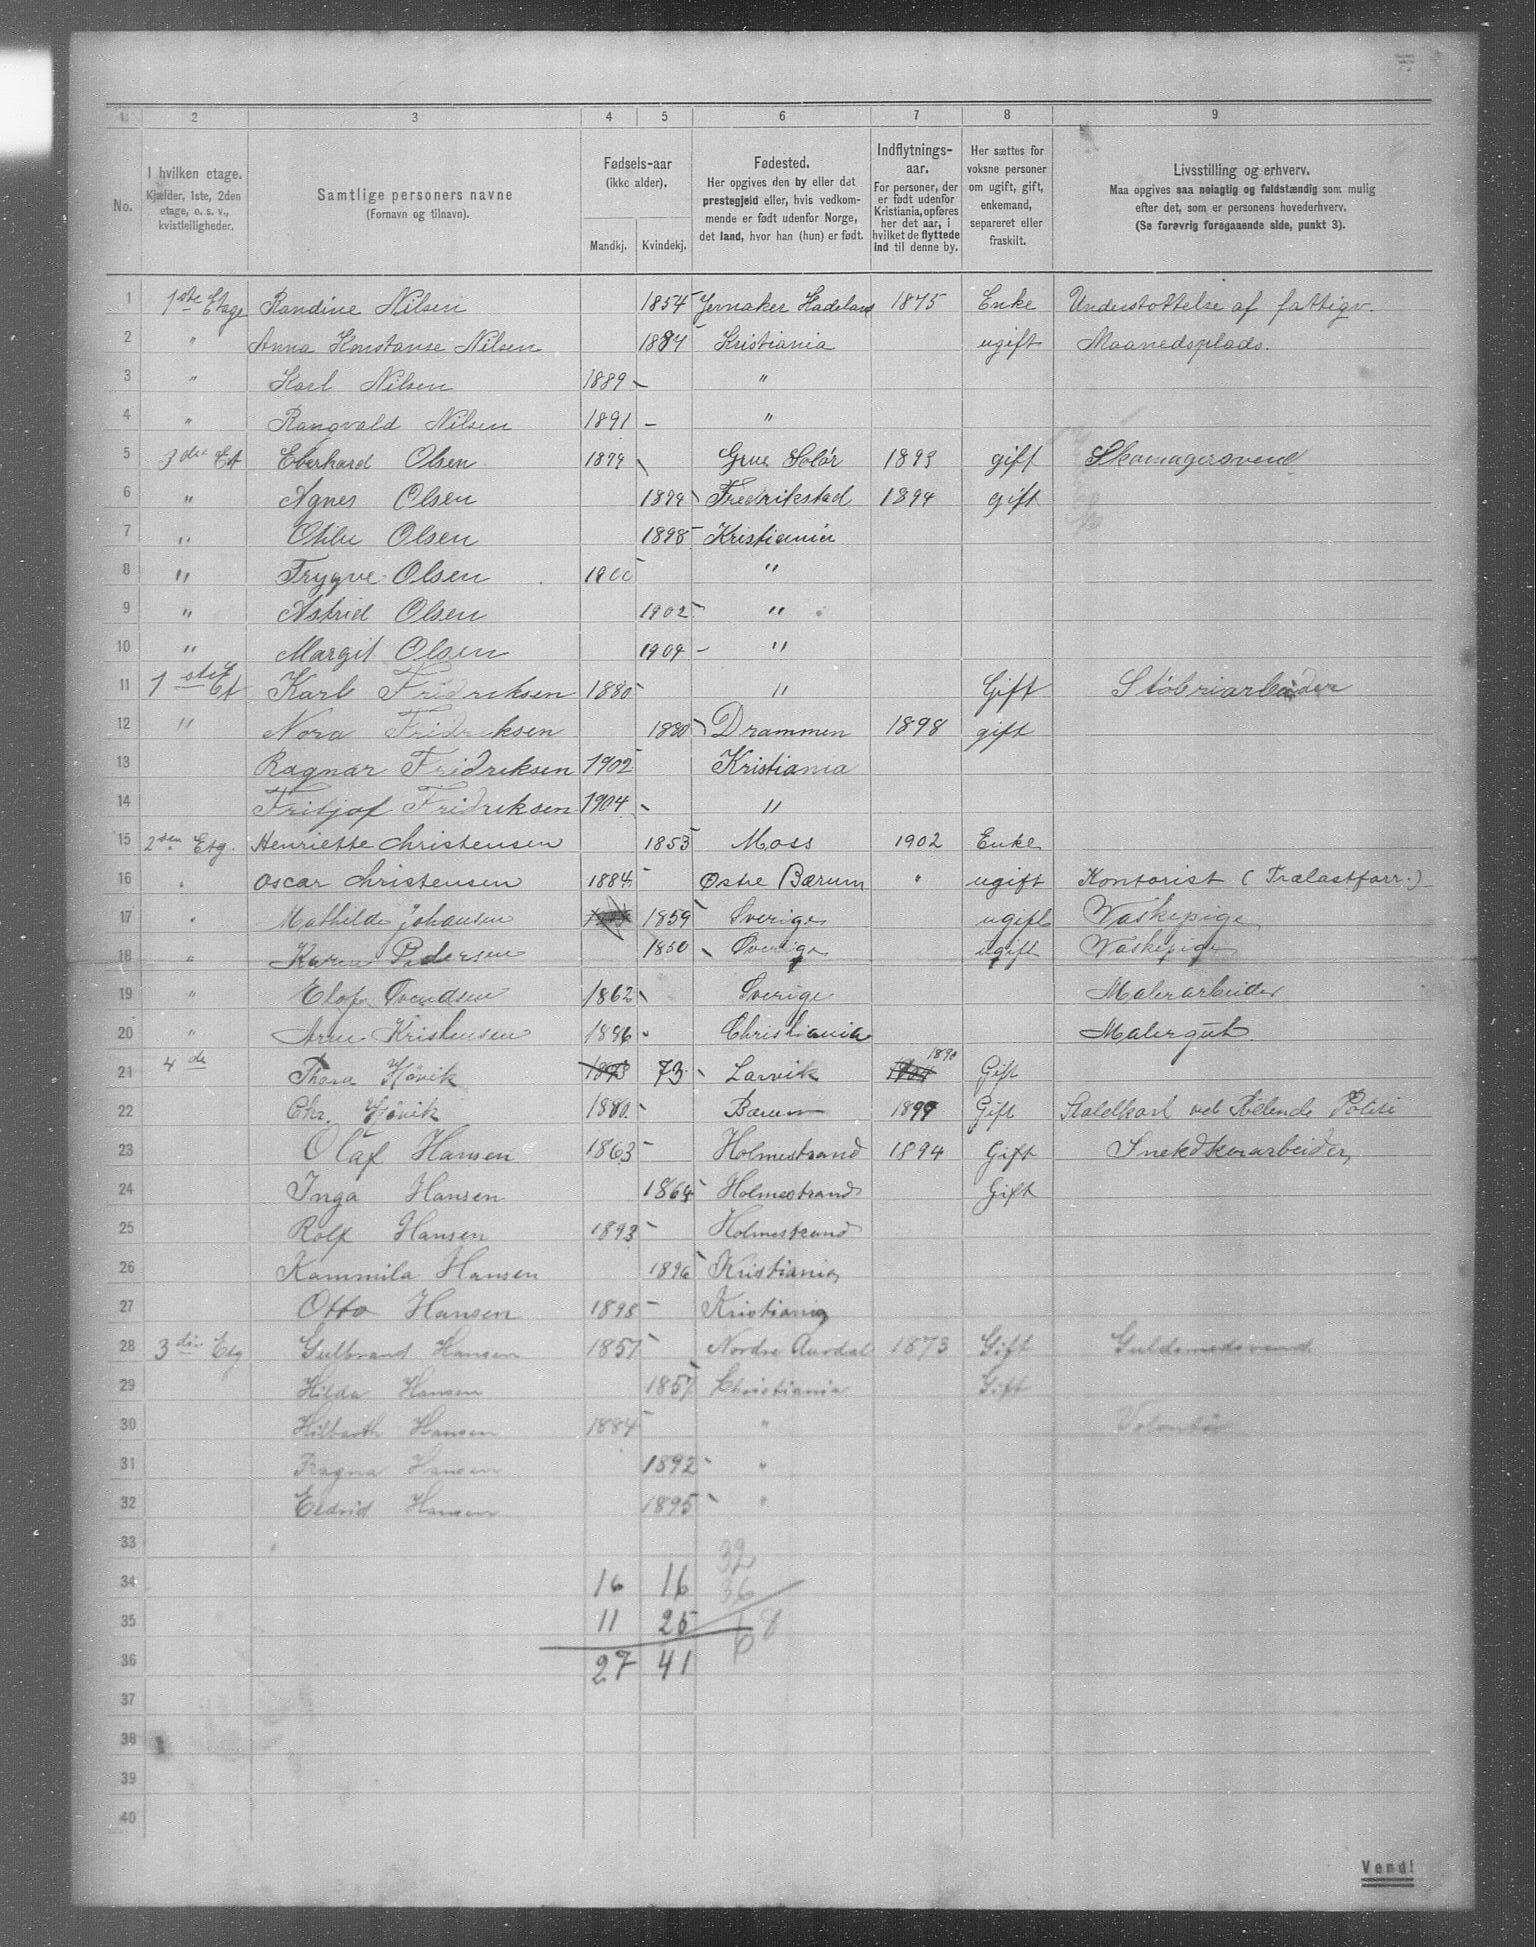 1 2 3 4 5 6 7 8 9
No.
I hvilken etage.
Kjælder, 1ste, 2den
etage, o. s. v.,
kvistleiligheder.
Samtlige personers navne
(Fornavn og tilnavn).
Fødsels-aar
(ikke alder).
Mandkj. Kvindekj.
Fødested.
Her opgives den by eller det
prestegjeld eller, hvis vedkom-
mende er født udenfor Norge,
det land, hvor han (hun) er født.
Indflytnings-
aar.
For personer, der
er født udenfor
Kristiania, opføres
her det aar, i
hvilket de flyttede
ind til denne by.
Her sættes for
voksne personer
om ugift, gift,
enkemand,
separeret eller
fraskilt.
Livsstilling og erhverv.
Maa opgives saa nøiagtig og fuldstændig som mulig
efter det, som er personens hovederhverv.
(Se forøvrig foregaaende side, punkt 3).
1 1ste Etage Randine Nilsen 1854 Jevnaker Hadeland 1875 Enke Understottelse af fattigv.
2 " Anna Konstanse Nilsen 1884 Kristiania ugift Maanedsplads.
3 " Karl Nilsen 1889 - "
4 " Rangvald Nilsen 1891 - "
5 3die Et Eberhard Olsen 1874 Grue Solør 1893 gift Skomagersvend
6 " Agnes Olsen 1874 Fredrikstad 1894 gift
7 " Otilie Olsen 1898 Kristiania
8 " Trygve Olsen 1900 "
9 " Astrid Olsen 1902 "
10 " Margit Olsen 1904 - "
11 1ste Et Karl Fridriksen 1880 " Gift Støbriarbeider
12 " Nora Fridriksen 1880 Drammen 1898 gift
13 Ragnar Fridreksen 1902 Kristiania
14 Fritjof Fridreksen 1904 "
15 2den Etg. Henriette Christensen 1853 Moss 1902 Enke
16 " Oscar Christensen 1884 Østre Bærum " ugift Kontorist (Trælastforr.)
17 " Mathilde Johansen 1859 Sverige ugift Vaskepige
18 " Karen Pedersen 1850 Sverige ugift Vaskepige
19 " Elof Svendsen 1862 Sverige Malerarbeider
20 " Arne Kristensen 1896 Christiania Malergut.
21 4de Thora Høvik 1873 73 Larvik 1890 Gift
22 Chr. Høvik 1880 Bærum 1899 Gift Staldkarl ved Ridende Politi
23 Olaf Hansen 1863 Holmestrand 1894 Gift Snekdkerarbeider
24 Inga Hansen 1864 Holmestrand Gift
25 Rolf Hansen 1893 Holmestrand
26 Kammila Hansen 1896 Kristiania
27 Otto Hansen 1898 Kristiania
28 3die Etg Gulbrand Hansen 1857 Nordre Aurdal 1873 Gift Guldsmedsvend
29 Hilda Hansen 1857 Christiania Gift
30 Hilbarth Hansen 1884 " Volontør
31 Ragna Hansen 1892 "
32 Eldrid Hansen 1895 "
33 32
34 16 16 36
35 11 25 68
36 27 41
37
38
39
40
Vend!